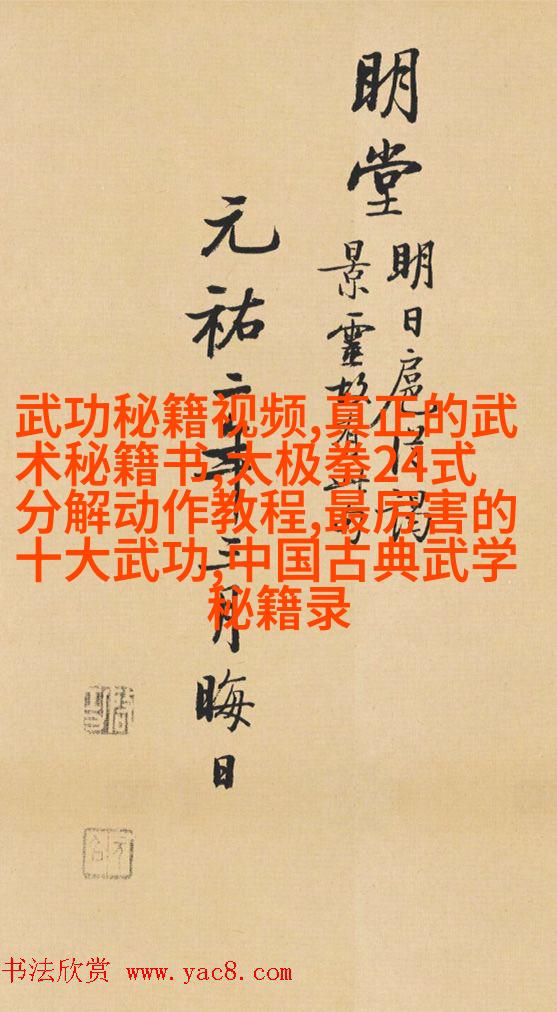 明堂
明日扈從謁
景靈
元祐二年三月晦日
武功秘籍视频,真正的武
术秘籍书,太极拳24式
分解动作教程,最厉害的
十大武功,中国古典武学
秘籍录
书法欣赏 www.yac8.com